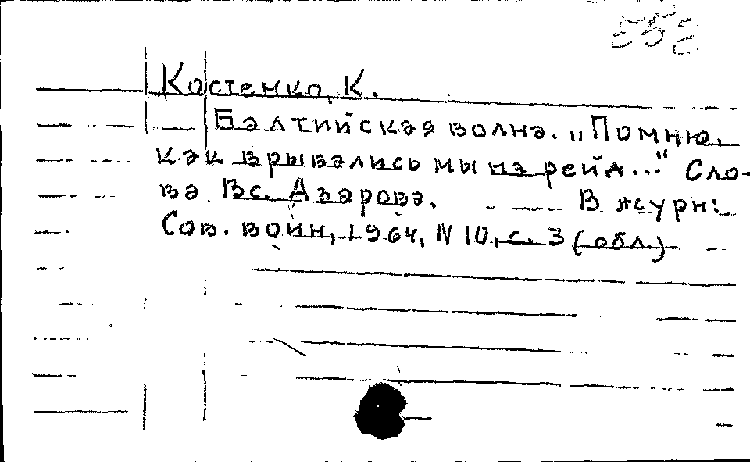 558
Костенко, К.
Балтийская волна. „Помню,
как врывались мы на рейд..." Сло-
ва Вс. Азарова. В журн:
Сов. воин, 1964, N 10, с. 3 (обл.)